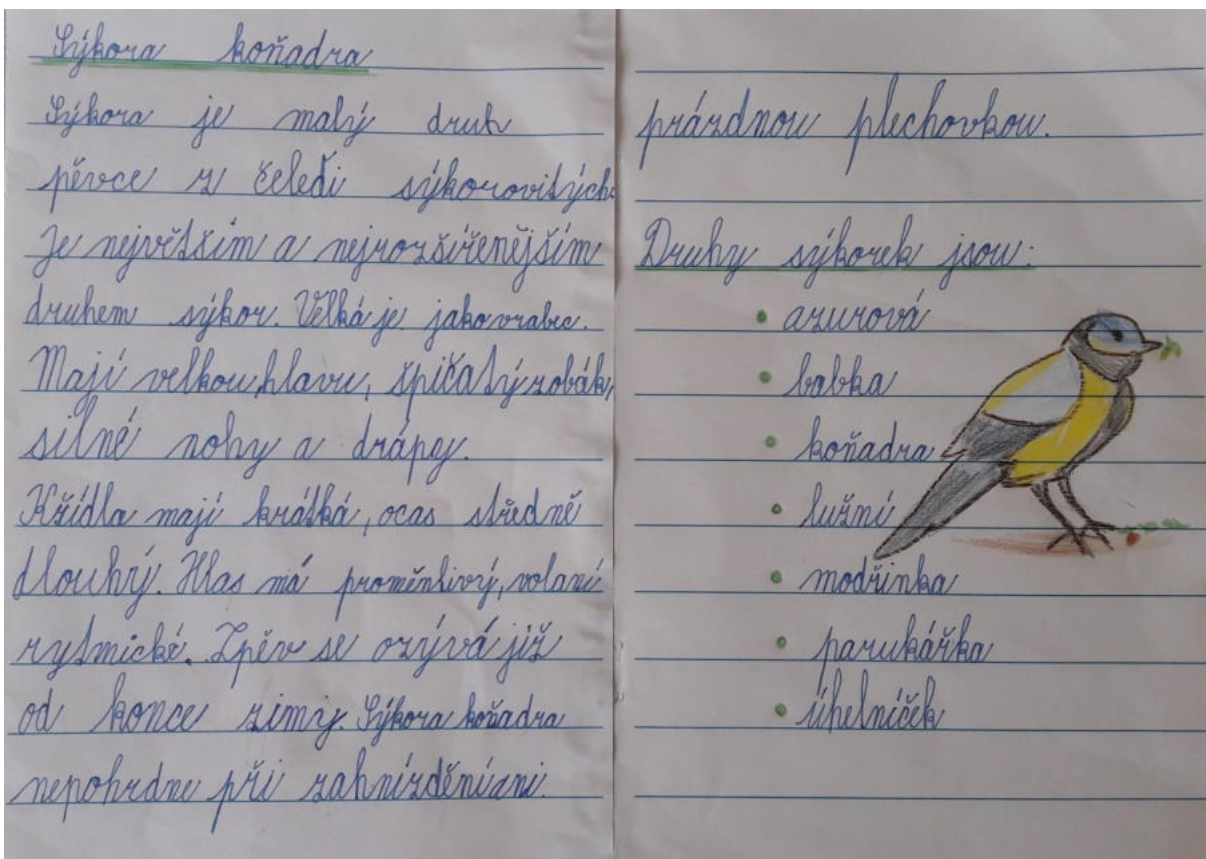 Sýkora koňadra
Sýkora je malý druh
pěvce z čeledi sýkorovitých.
Je největším a nejrozšířenějším
druhem sýkor. Velká je jako vrabec.
Mají velkou hlavu, špičatý zobák,
silné nohy a drápy.
Křídla mají krátká, ocas středně
dlouhý. Hlas má proměnlivý, volání
rytmické. Zpěv se ozývá již
od konce zimy. Sýkora koňadra
nepohrdne při zahnízdění ani.
prázdnou plechovkou.
Druhy sýkorek jsou:
• azurová
• babka
• koňadra
• lužní
• modřinka
• parukářka
• úhelníček